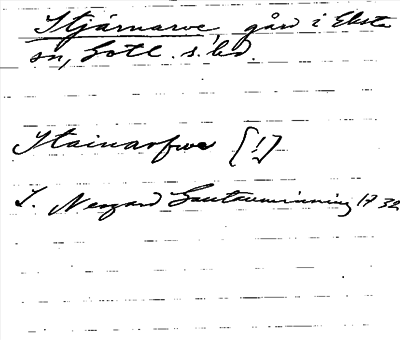 Stjärnarve, gård i Eksta
sn, Gotl. s. hd.
Stainarfwe [!]
L. Neogard Gautauminning 1732